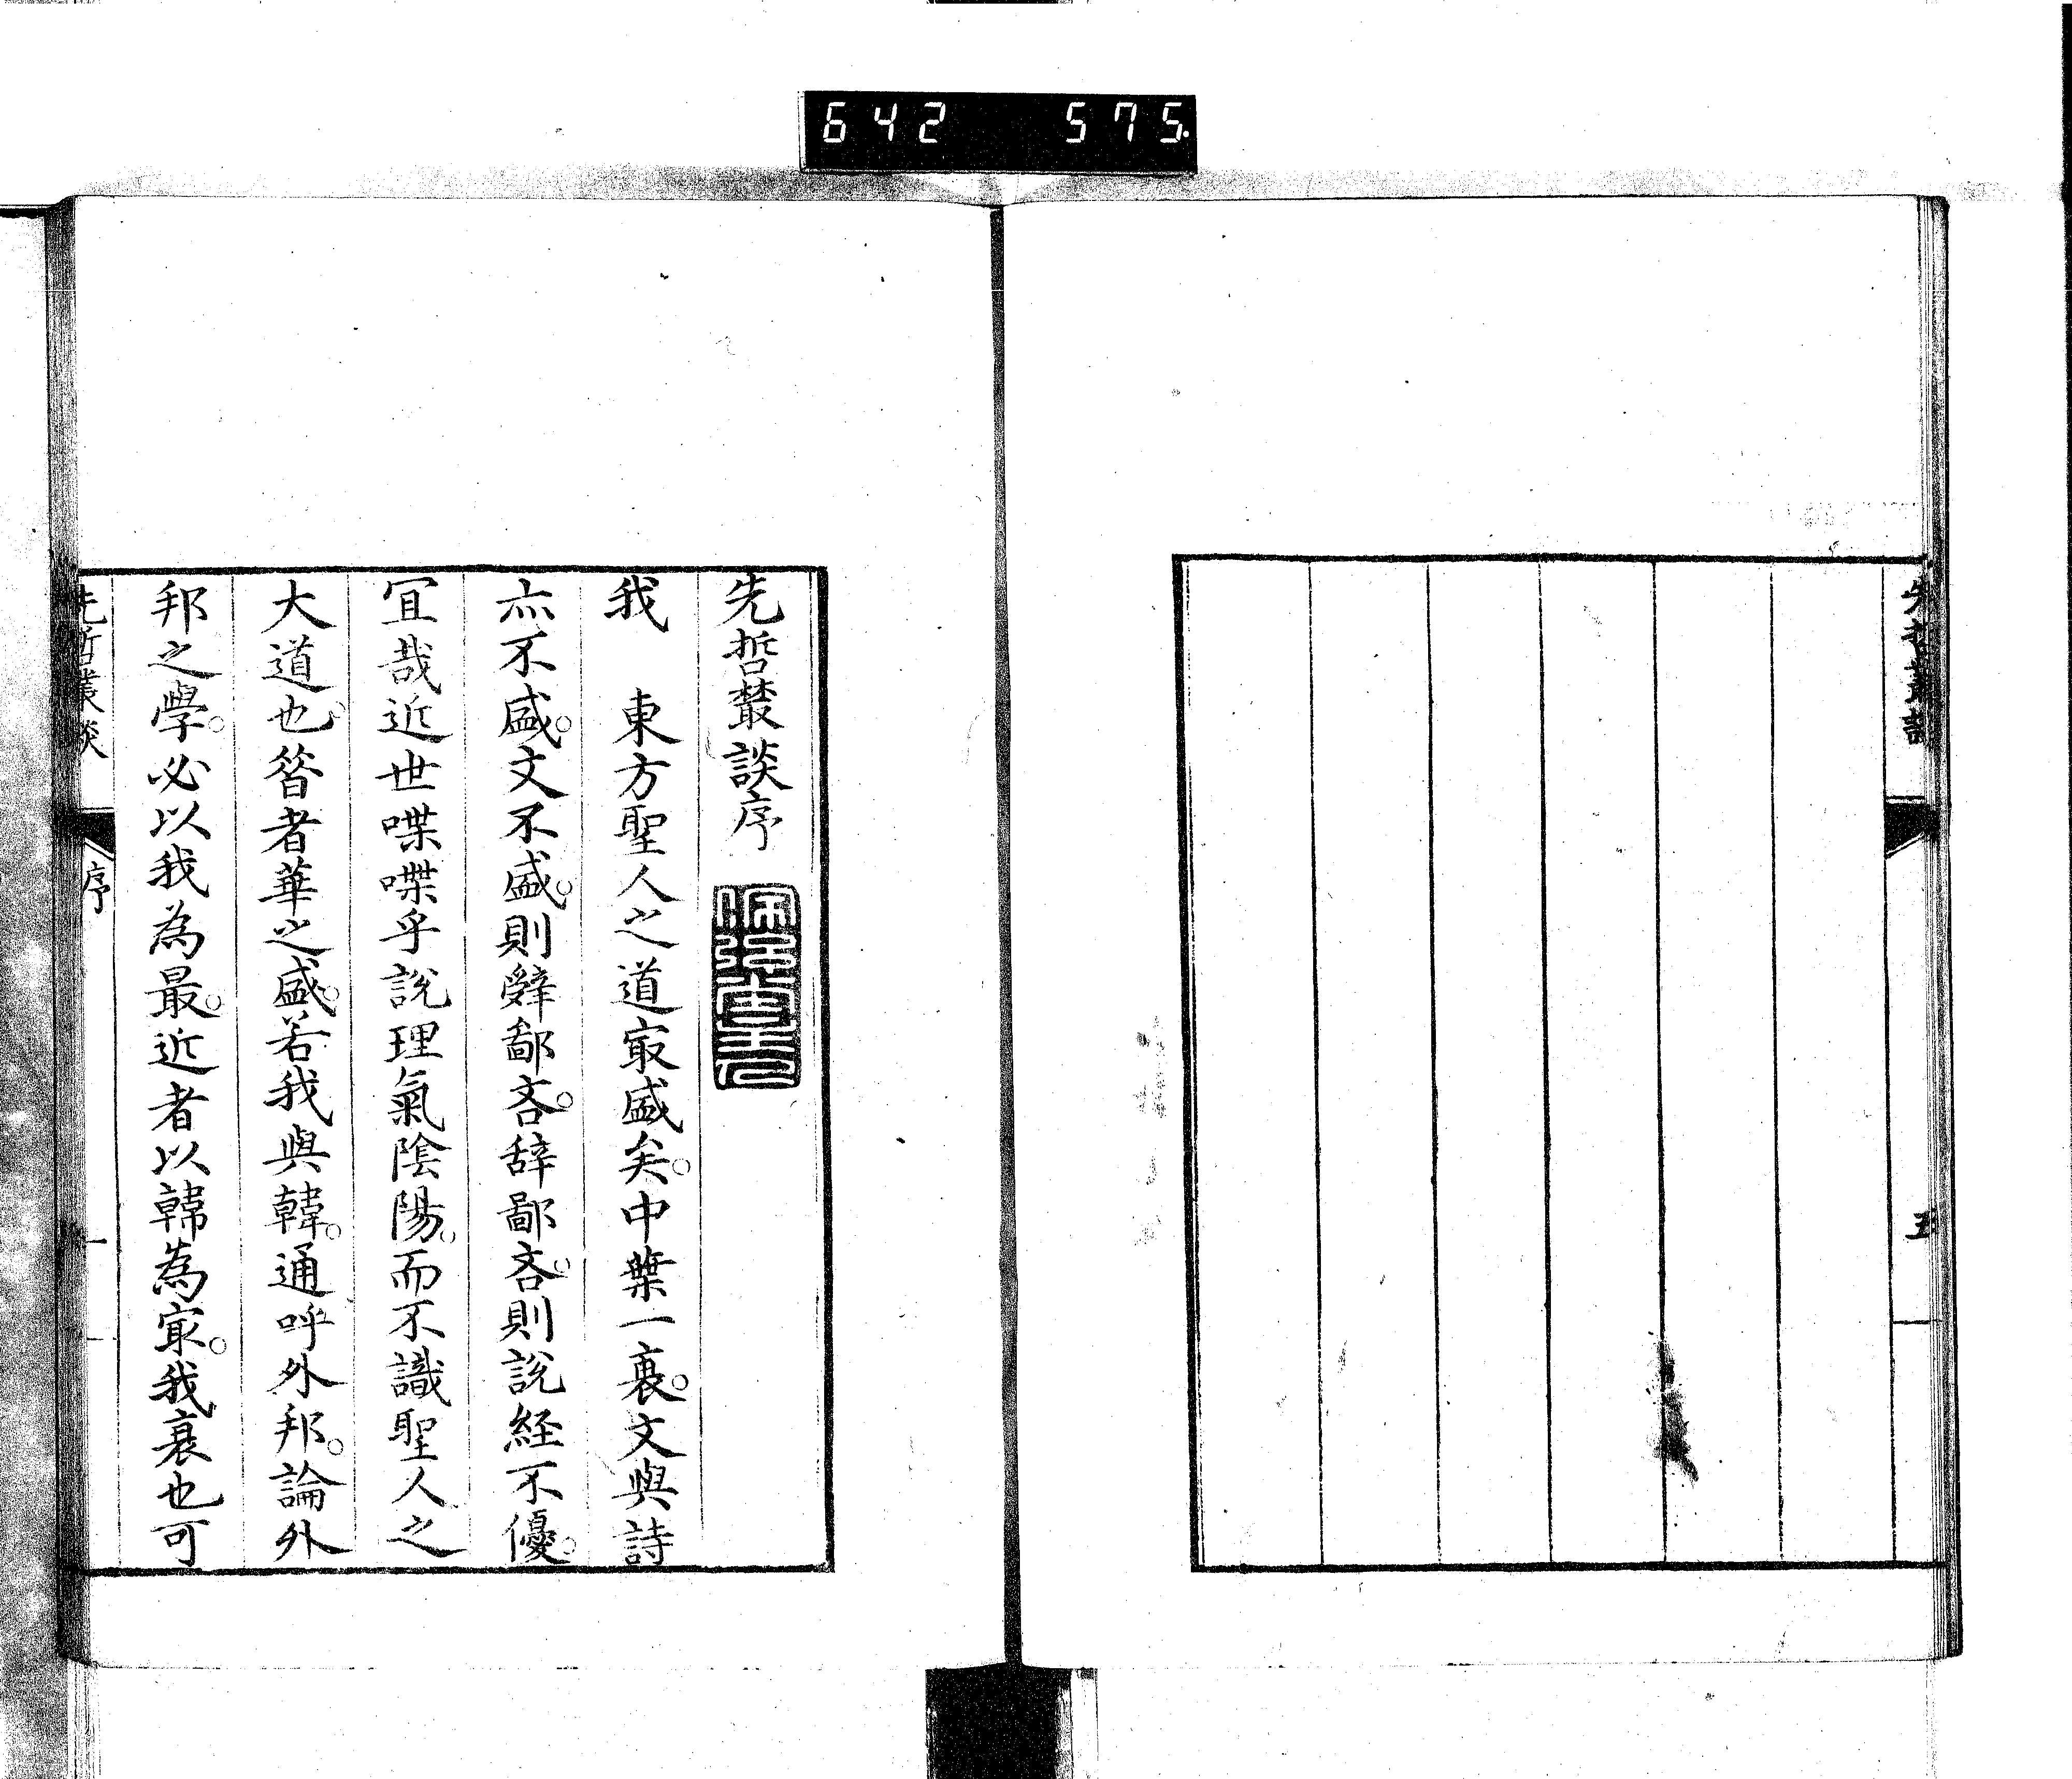 642 575
先哲叢談
五
先哲叢談序
我　東方聖人之道冣盛矣。中葉一衰。文與詩
亦不盛。文不盛。則辭鄙吝。辞鄙吝。則說経不優。
宜哉近世喋喋乎說理氣陰陽。而不識聖人之
大道也。昝者華之盛。若我與韓。通呼外邦。論外
邦之學。必以我為最。近者以韓為冣。我衰也可
先哲叢談
序
一